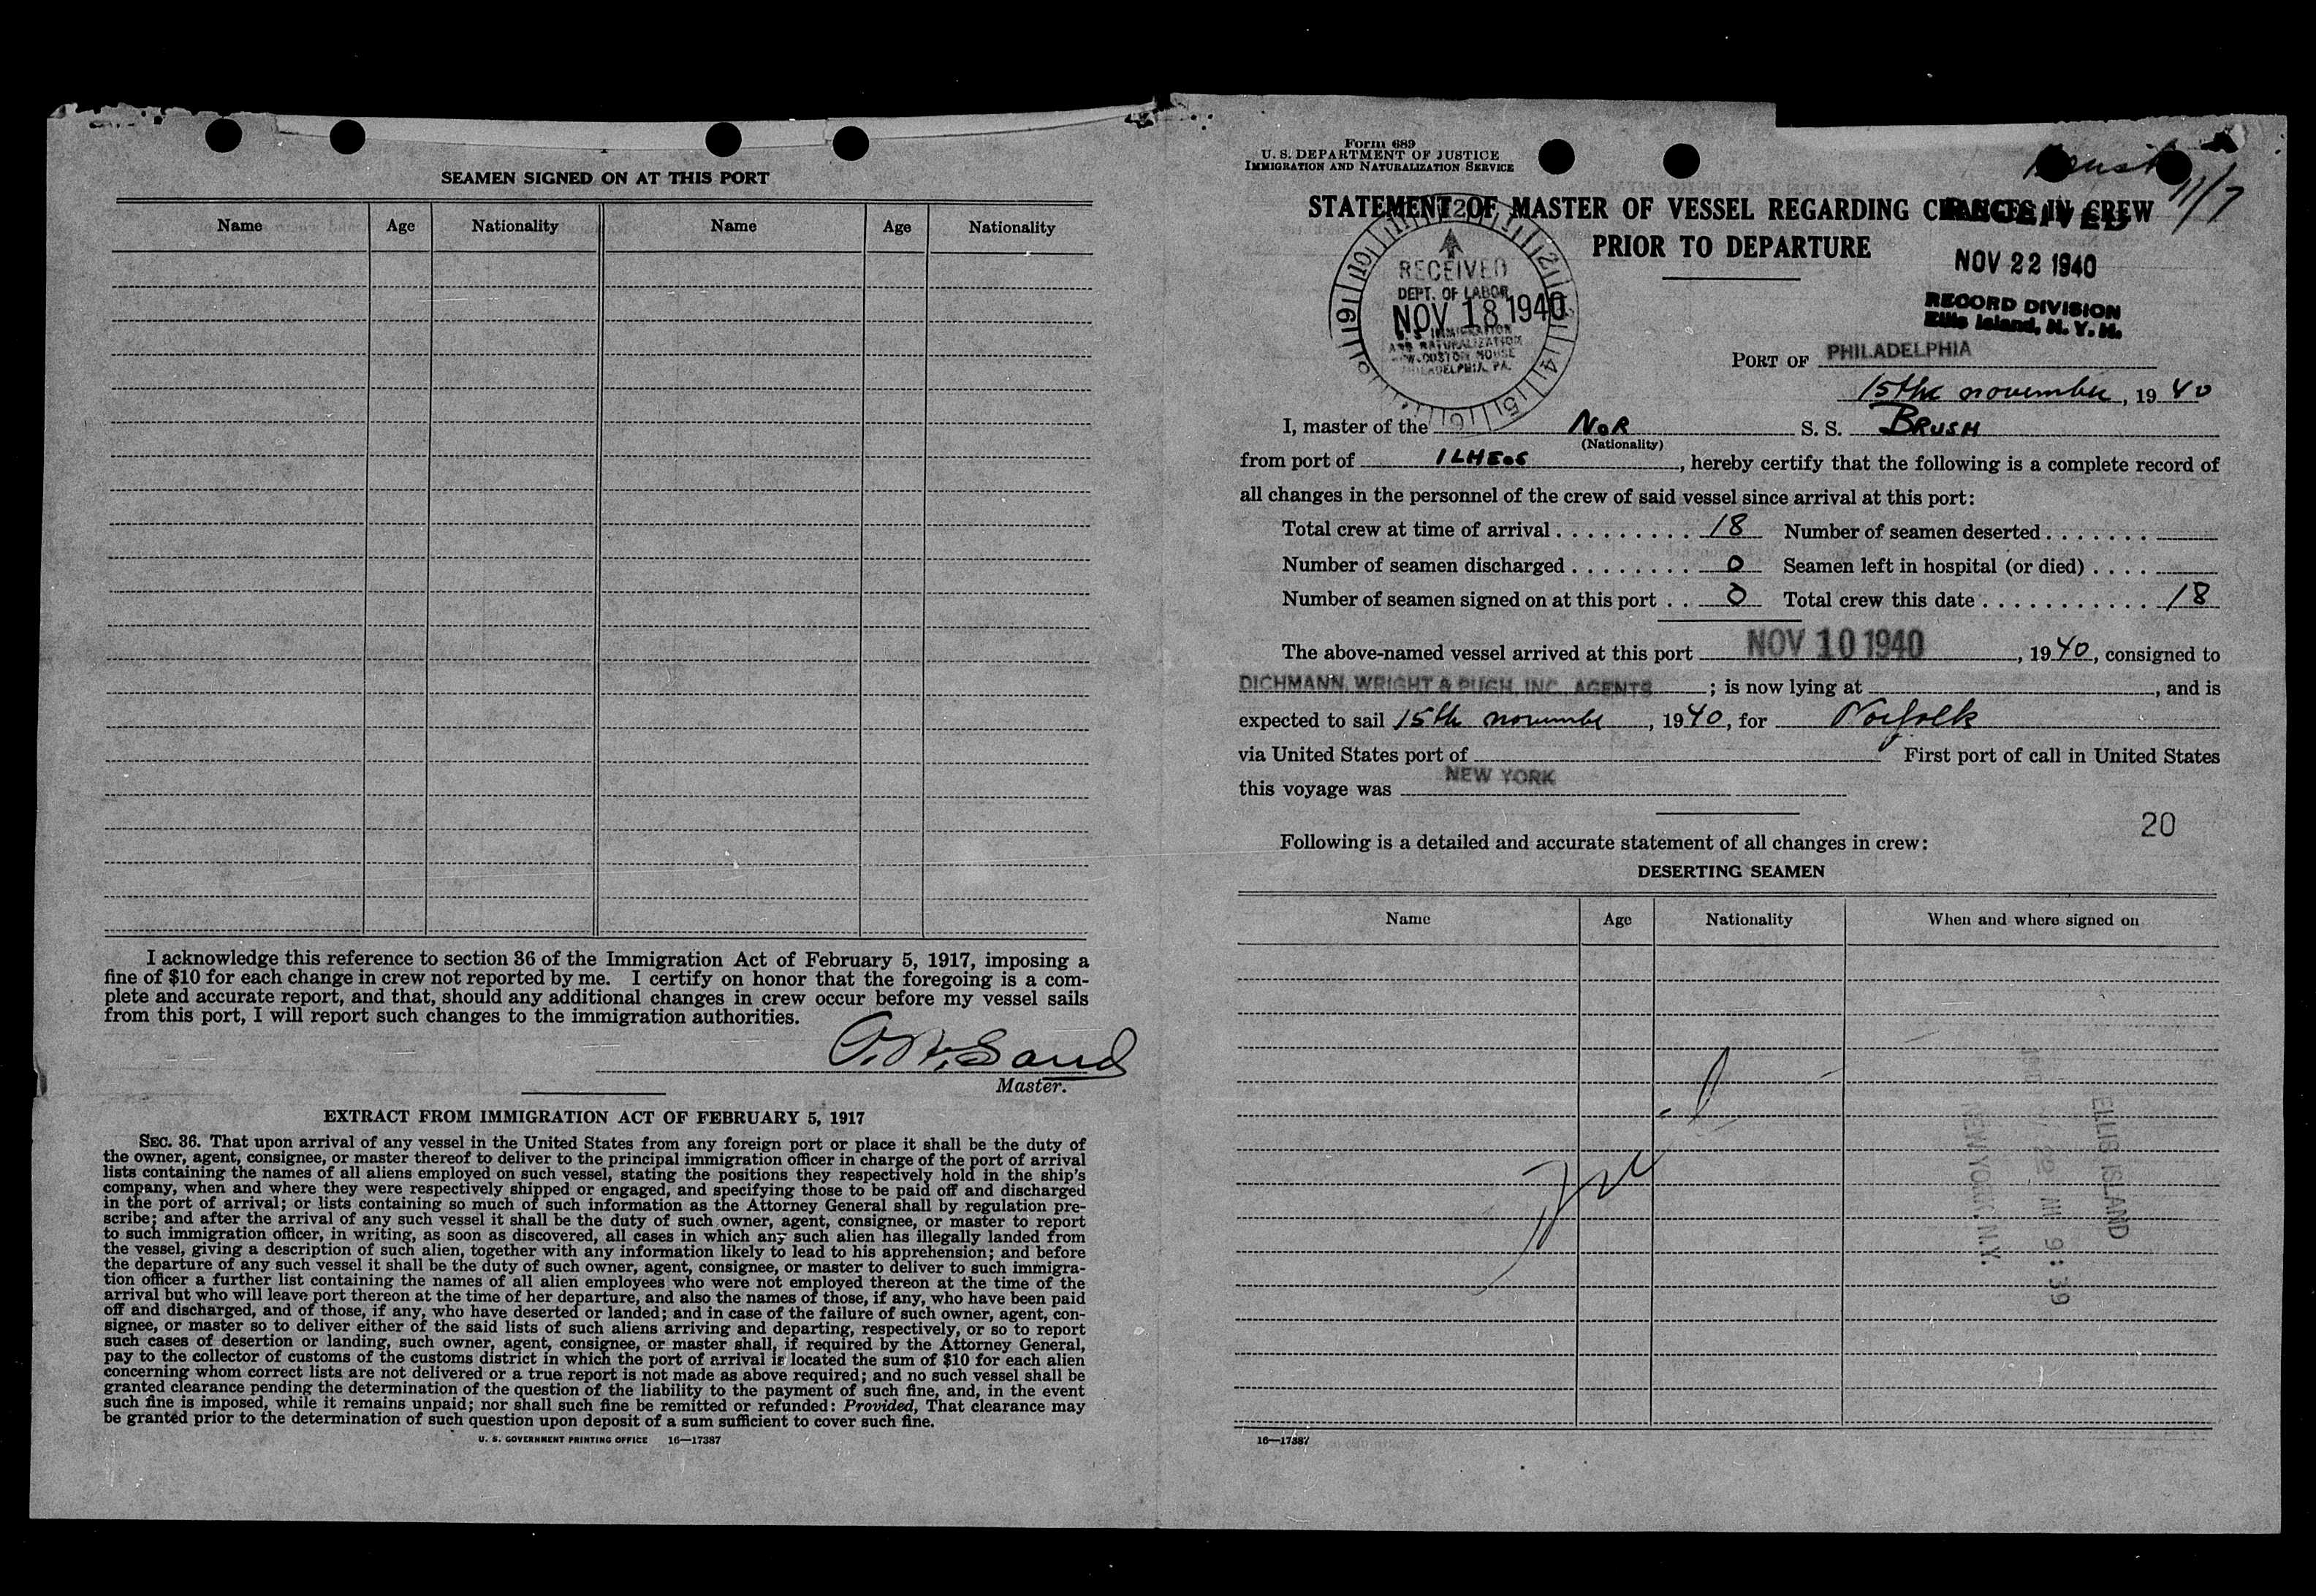 SEAMEN SIGNED ON AT THIS PORT
Name Age Nationality Name Age Nationality
I acknowledge this reference to section 36 of the Immigration Act of February 5, 1917, imposing a
fine of $10 for each change in crew not reported by me. I certify on honor that the foregoing is a com-
plete and accurate report, and that, should any additional changes in crew occur before my vessel sails
from this port, I will report such changes to the immigration authorities.
Sand
Master.
EXTRACT FROM IMMIGRATION ACT OF FEBRUARY 5, 1917
SEC. 36. That upon arrival of any vessel in the United States from any foreign port or place it shall be the duty of
the owner, agent, consignee, or master thereof to deliver to the principal immigration officer in charge of the port of arrival
lists containing the names of all aliens employed on such vessel, stating the positions they respectively hold in the ship's
company, when and where they were respectively shipped or engaged, and specifying those to be paid off and discharged
in the port of arrival; or lists containing so much of such information as the Attorney General shall by regulation pre-
scribe; and after the arrival of any such vessel it shall be the duty of such owner, agent, consignee, or master to report
to such immigration officer, in writing, as soon as discovered, all cases in which any such alien has illegally landed from
the vessel, giving a description of such alien, together with any information likely to lead to his apprehension; and before
the departure of any such vessel it shall be the duty of such owner, agent, consignee, or master to deliver to such immigra-
tion officer a further list containing the names of all alien employees who were not employed thereon at the time of the
arrival but who will leave port thereon at the time of her departure, and also the names of those, if any, who have been paid
off and discharged, and of those, if any, who have deserted or landed; and in case of the failure of such owner, agent, con-
signee, or master so to deliver either of the said lists of such aliens arriving and departing, respectively, or so to report
such cases of desertion or landing, such owner, agent, consignee, or master shall, if required by the Attorney General,
pay to the collector of customs of the customs district in which the port of arrival is located the sum of $10 for each alien
concerning whom correct lists are not delivered or a true report is not made as above required; and no such vessel shall be
granted clearance pending the determination of the question of the liability to the payment of such fine, and, in the event
such fine is imposed, while it remains unpaid; nor shall such fine be remitted or refunded: Provided, That clearance may
be granted prior to the determination of such question upon deposit of a sum sufficient to cover such fine.
U. S. GOVERNMENT PRINTING OFFICE 16—17387
Form 689
U. S. DEPARTMENT OF JUSTICE
IMMIGRATION AND NATURALIZATION SERVICE
11/7
STATEMENT OF MASTER OF VESSEL REGARDING CHANGES IN CREW
PRIOR TO DEPARTURE
RECEIVED
NOV 22 1940
RECORD DIVISION
Ellis Island, N. Y. H.
RECEIVED
DEPT. OF LABOR
NOV 18 1940
U. S. IMMIGRATION
AND NATURALIZATION
NEW CUSTOM HOUSE
PHILADELPHIA, PA.
PORT OF PHILADELPHIA
15the november, 1940
I, master of the NOR S. S. BRUSH
(Nationality)
from port of ILHEOS, hereby certify that the following is a complete record of
all changes in the personnel of the crew of said vessel since arrival at this port:
Total crew at time of arrival 18 Number of seamen deserted
Number of seamen discharged 0 Seamen left in hospital (or died)
Number of seamen signed on at this port 0 Total crew this date 18
The above-named vessel arrived at this port NOV 10 1940, 1940, consigned to
DICHMANN, WRIGHT & PUGH, INC., AGENTS; is now lying at , and is
expected to sail 15th novembe, 1940, for Norfolk
via United States port of First port of call in United States
this voyage was NEW YORK
20
Following is a detailed and accurate statement of all changes in crew:
DESERTING SEAMEN
Name Age Nationality When and where signed on
ELLIS ISLAND
22 9:39
NEW YORK, N.Y.
16—17387